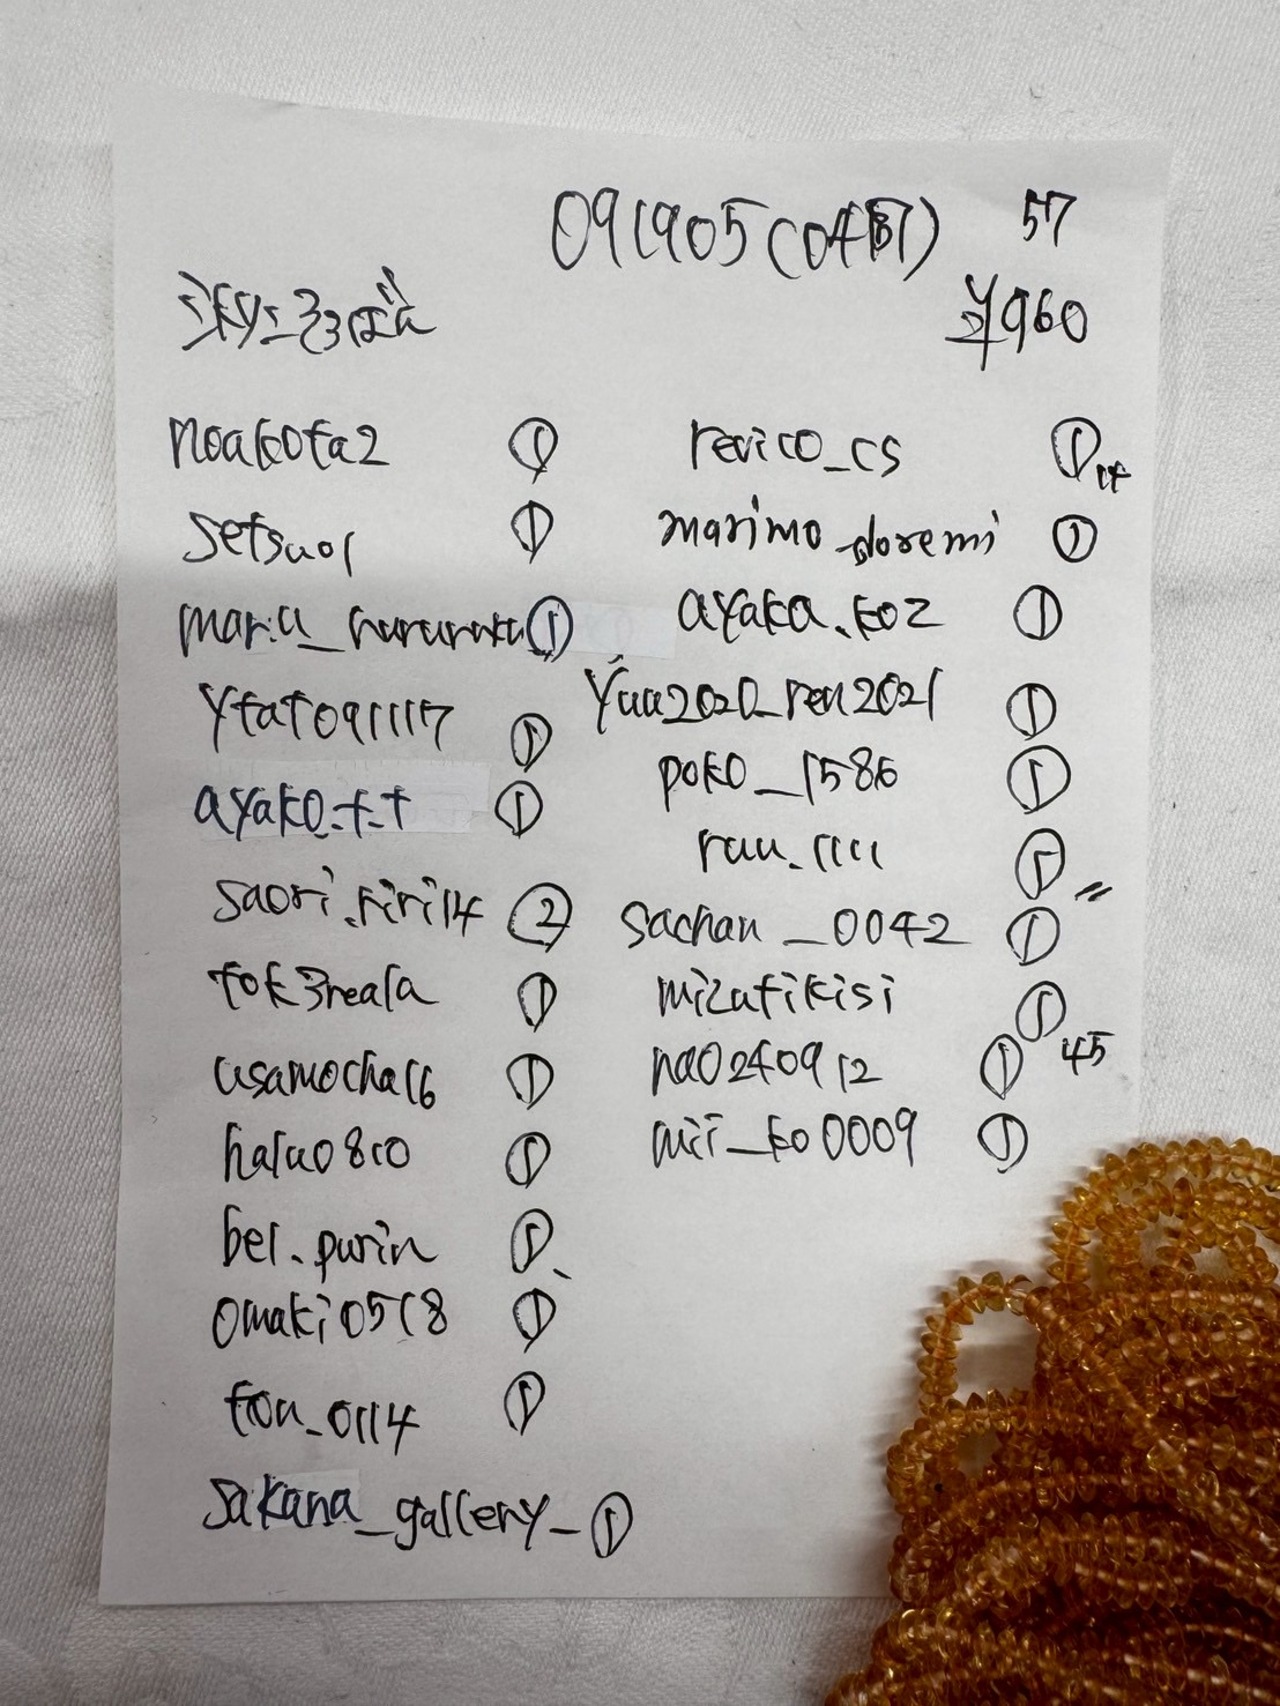 091905(0457) 57
¥960
noakota2 ①
setsuo1 ①
①
ytat091117 ①
ayako_t_t ①
saori.riri14 ②
tok3reala ①
usamocha16 ①
halu0810 ①
bel.purin ①
omaki0518 ①
tou_0114 ①
sakana_gallery_ ①
revico_cs ①
marimo_doremi ①
ayaka.koz ①
yuu2020_ren2021 ①
poko_1586 ①
ruu.1111 ①
sachan_0042 ①
mizutikisi ①
45
nao240912 ①
mii_ko0009 ①